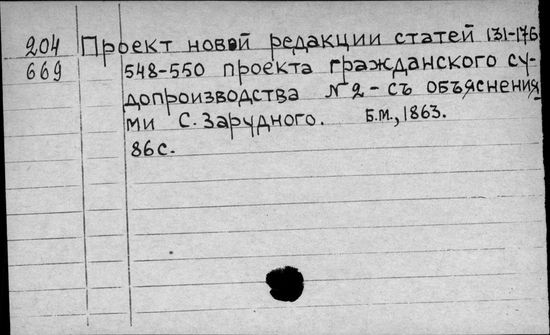 204 Проект новой редакции статей 131-176
669 548-550 проекта гражданского су-
допроизводства №2 - съ объяснения
ми С. Зарудного. Б.м., 1863.
86 с.